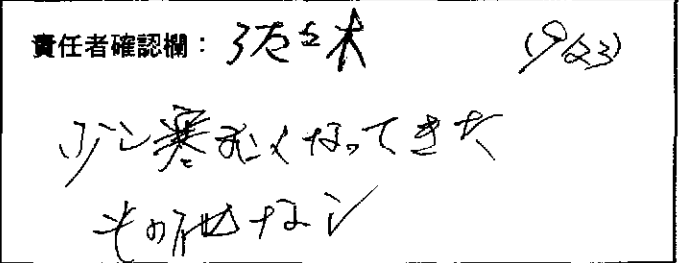 責任者確認欄：佐々木 (9/23)
少し寒くなってきた
その他なし